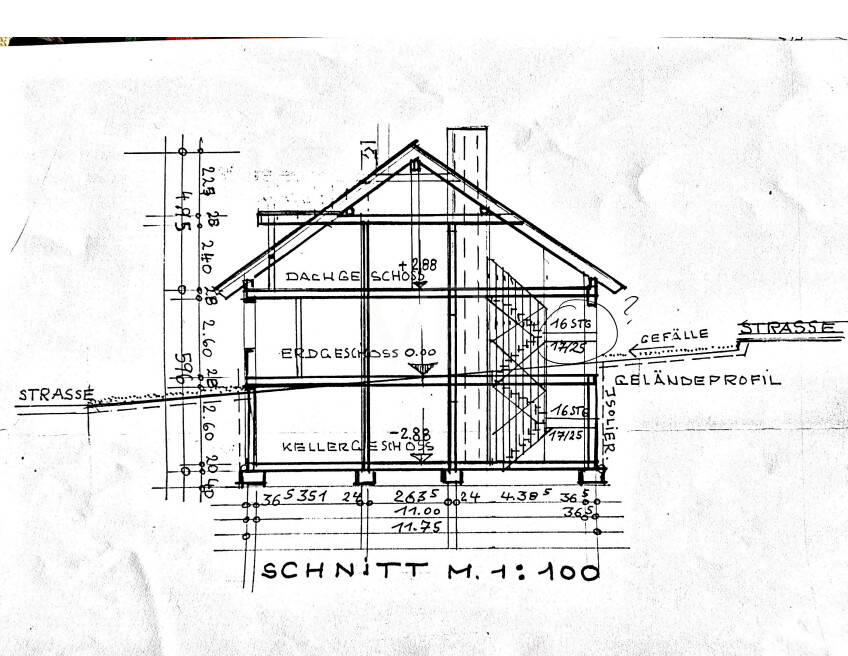 DACHGESCHOSS
+2.88
ERDGESCHOSS 0.00
KELLERGESCHOSS
-2.88
16 STG
17/25
?
16 STG
17/25
GEFÄLLE
STRASSE
GELÄNDEPROFIL
ISOLIER.
STRASSE
4,95
5,96
2,25
28
2.40
28
2.60
28
2.60
20
40
36⁵ 351 24 263⁵ 24 4.38⁵ 36⁵
11.00 36⁵
11.75
SCHNITT M. 1:100